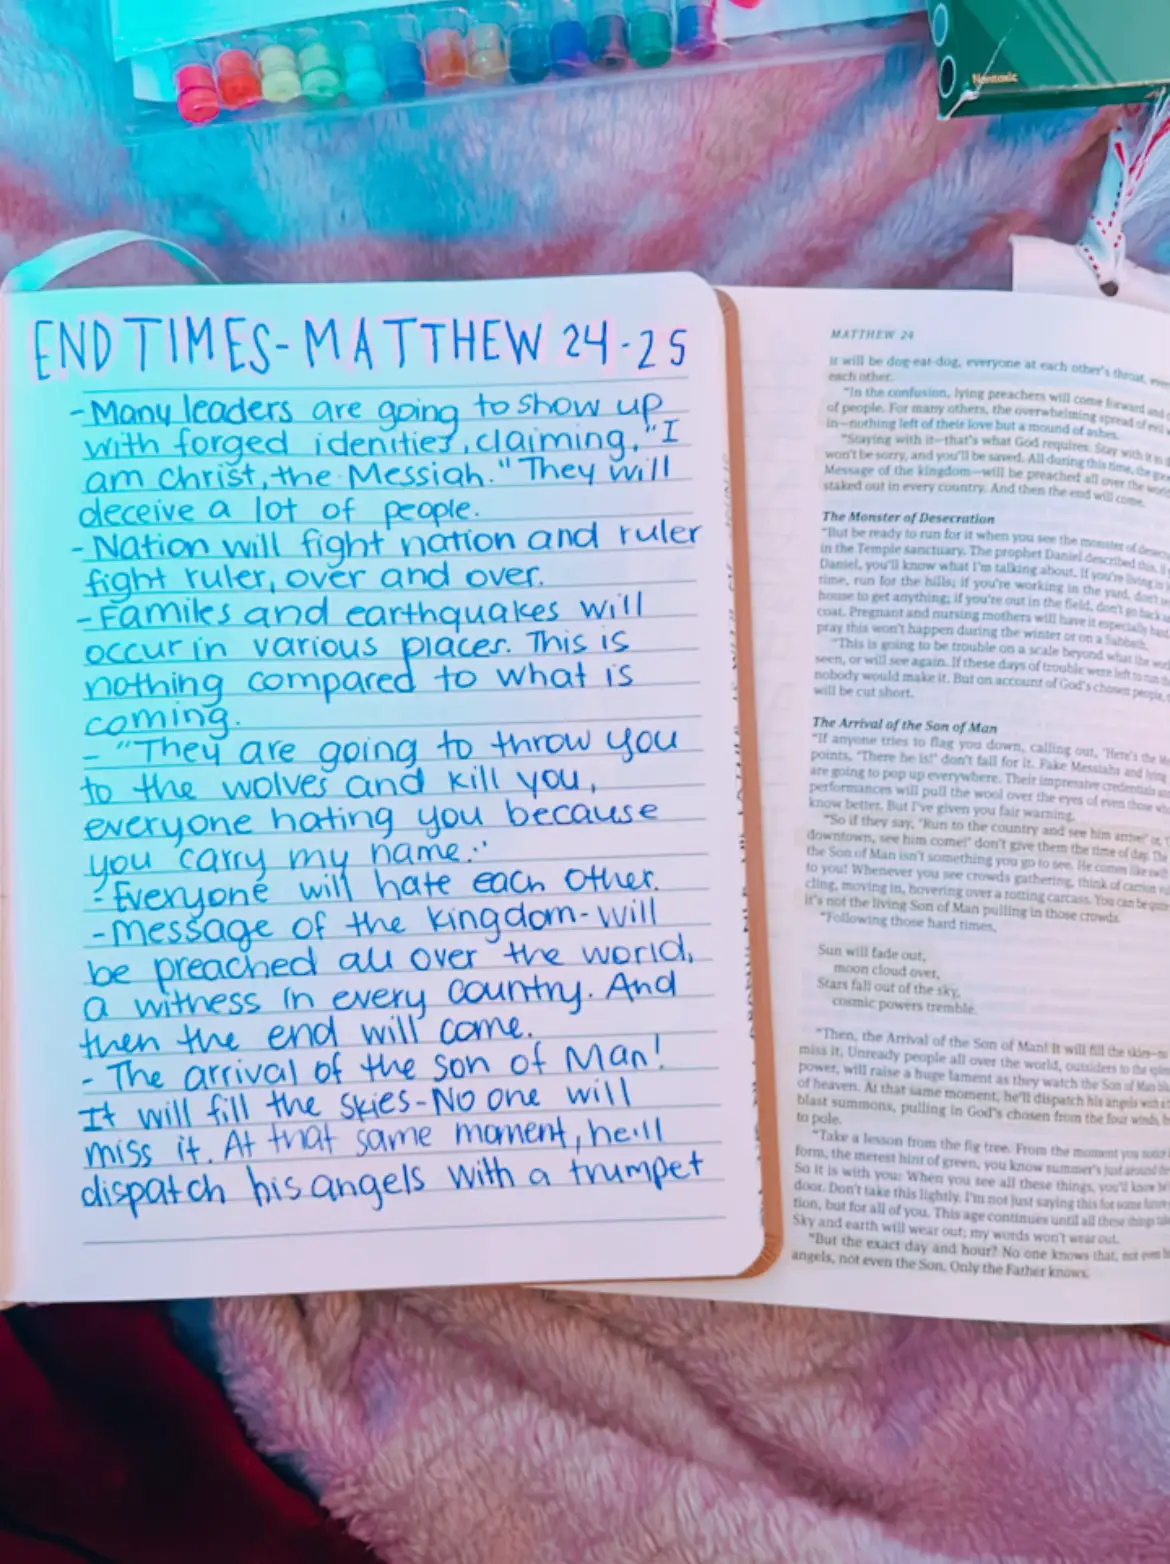 Nontoxic
END TIMES - MATTHEW 24-25
- Many leaders are going to show up
with forged idenities, claiming, "I
am Christ, the Messiah." They will
deceive a lot of people.
- Nation will fight nation and ruler
fight ruler, over and over.
- Familes and earthquakes will
occur in various places. This is
nothing compared to what is
coming.
- "They are going to throw you
to the wolves and kill you,
everyone hating you because
you carry my name."
- Everyone will hate each other.
- Message of the kingdom - will
be preached all over the world,
a witness in every country. And
then the end will come.
- The arrival of the son of Man!
It will fill the skies - No one will
miss it. At that same moment, he'll
dispatch his angels with a trumpet
MATTHEW 24
it will be dog-eat-dog, everyone at each other's throat,
each other.
"In the confusion, lying preachers will come forward and
of people. For many others, the overwhelming spread of evil
in—nothing left of their love but a mound of ashes.
"Staying with it—that's what God requires. Stay with it
won't be sorry, and you'll be saved. All during this time, the
Message of the kingdom—will be preached all over the
staked out in every country. And then the end will come.
The Monster of Desecration
"But be ready to run for it when you see the monster of
in the Temple sanctuary. The prophet Daniel described this.
Daniel, you'll know what I'm talking about. If you're living in
time, run for the hills; if you're working in the yard, don't
house to get anything; if you're out in the field, don't go back
coat. Pregnant and nursing mothers will have it especially
pray this won't happen during the winter or on a Sabbath.
"This is going to be trouble on a scale beyond what the
seen, or will see again. If these days of trouble were left to run
nobody would make it. But on account of God's chosen people,
will be cut short.
The Arrival of the Son of Man
"If anyone tries to flag you down, calling out, 'Here's the
points, 'There he is!' don't fall for it. Fake Messiahs and lying
are going to pop up everywhere. Their impressive credentials
performances will pull the wool over the eyes of even those
know better. But I've given you fair warning.
"So if they say, 'Run to the country and see him arrive!' or,
downtown, see him come!' don't give them the time of day. The
the Son of Man isn't something you go to see. He comes like
to you! Whenever you see crowds gathering, think of carrion
cling, moving in, hovering over a rotting carcass. You can be
it's not the living Son of Man pulling in those crowds.
"Following those hard times,
Sun will fade out,
moon cloud over,
Stars fall out of the sky,
cosmic powers tremble.
"Then, the Arrival of the Son of Man! It will fill the skies—
miss it. Unready people all over the world, outsiders to the
power, will raise a huge lament as they watch the Son of Man
of heaven. At that same moment, he'll dispatch his angels with a
blast summons, pulling in God's chosen from the four winds,
to pole.
"Take a lesson from the fig tree. From the moment you notice
form, the merest hint of green, you know summer's just around the
So it is with you: When you see all these things, you'll know
door. Don't take this lightly. I'm not just saying this for some
tion, but for all of you. This age continues until all these things
Sky and earth will wear out; my words won't wear out.
"But the exact day and hour? No one knows that, not even
angels, not even the Son. Only the Father knows.